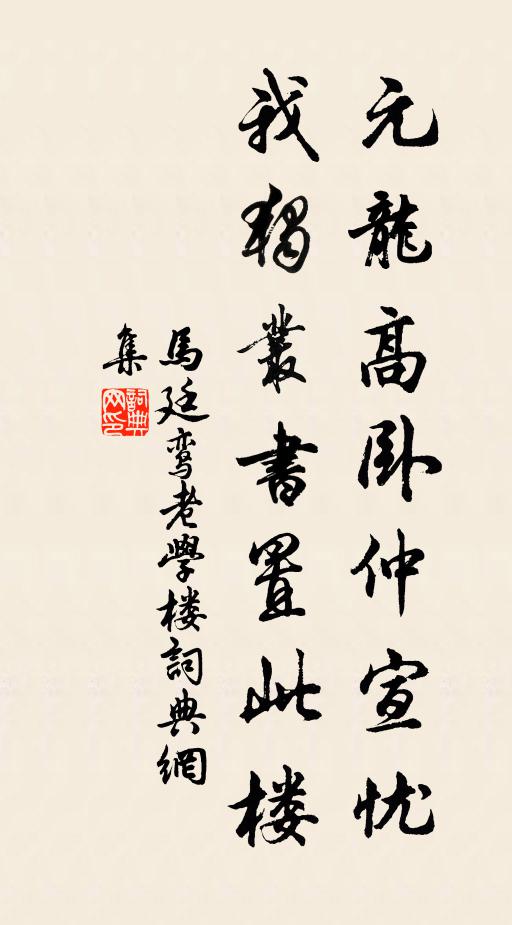 元龍高卧仲宣忧
我獨叢書置此楼
馬廷鸾老學楼詞典網
集
詞典网印